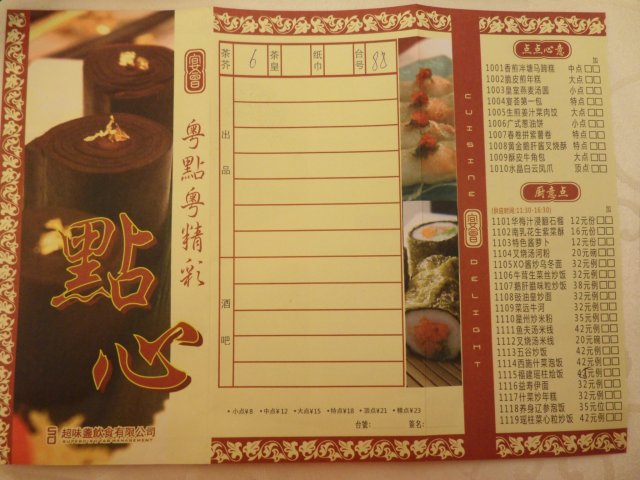 點心
超味盞飲食有限公司
宴會
粵點粵精彩
茶芥 6 茶皇 纸巾 台号 88
出品
酒吧
•小点¥8 •中点¥12 •大点¥15 •特点¥18 •顶点¥21 •精点¥23
台號: 签名:
CUISINE
宴會
DELIGHT
点点心意
加
1001香煎泮塘马蹄糕 中点
1002脆皮煎年糕 大点
1003皇室燕麦汤圆 小点
1004宴荟第一包 特点
1005生煎姜汁菜肉饺 大点
1006广式葱油饼 小点
1007春卷拼紫薯卷 特点
1008黄金鹅肝酱叉烧酥 特点
1009酥皮牛角包 大点
1010水晶白云凤爪 顶点
厨意点
(供应时间:11:30-16:30) 加
1101华梅汁浸翻石榴 12元份
1102南乳花生紫菜酥 16元份
1103特色酱萝卜 12元份
1104叉烧汤河粉 20元碗
1105XO酱炒乌冬面 32元例
1106牛茸生菜丝炒饭 32元例
1107鹅肝腊味粒炒饭 38元例
1108豉油皇炒面 32元例
1109菜远牛河 32元例
1110星州炒米粉 35元例
1111鱼夫汤米线 42元例
1112叉烧汤米线 20元碗
1113五谷炒饭 42元例
1114西施什菜泡饭 42元例
1115福建瑶柱烩饭 42元例
1116益寿伊面 32元例
1117什菜炒年糕 32元例
1118养身辽参泡饭 35元位
1119瑶柱菜心粒炒饭 42元例